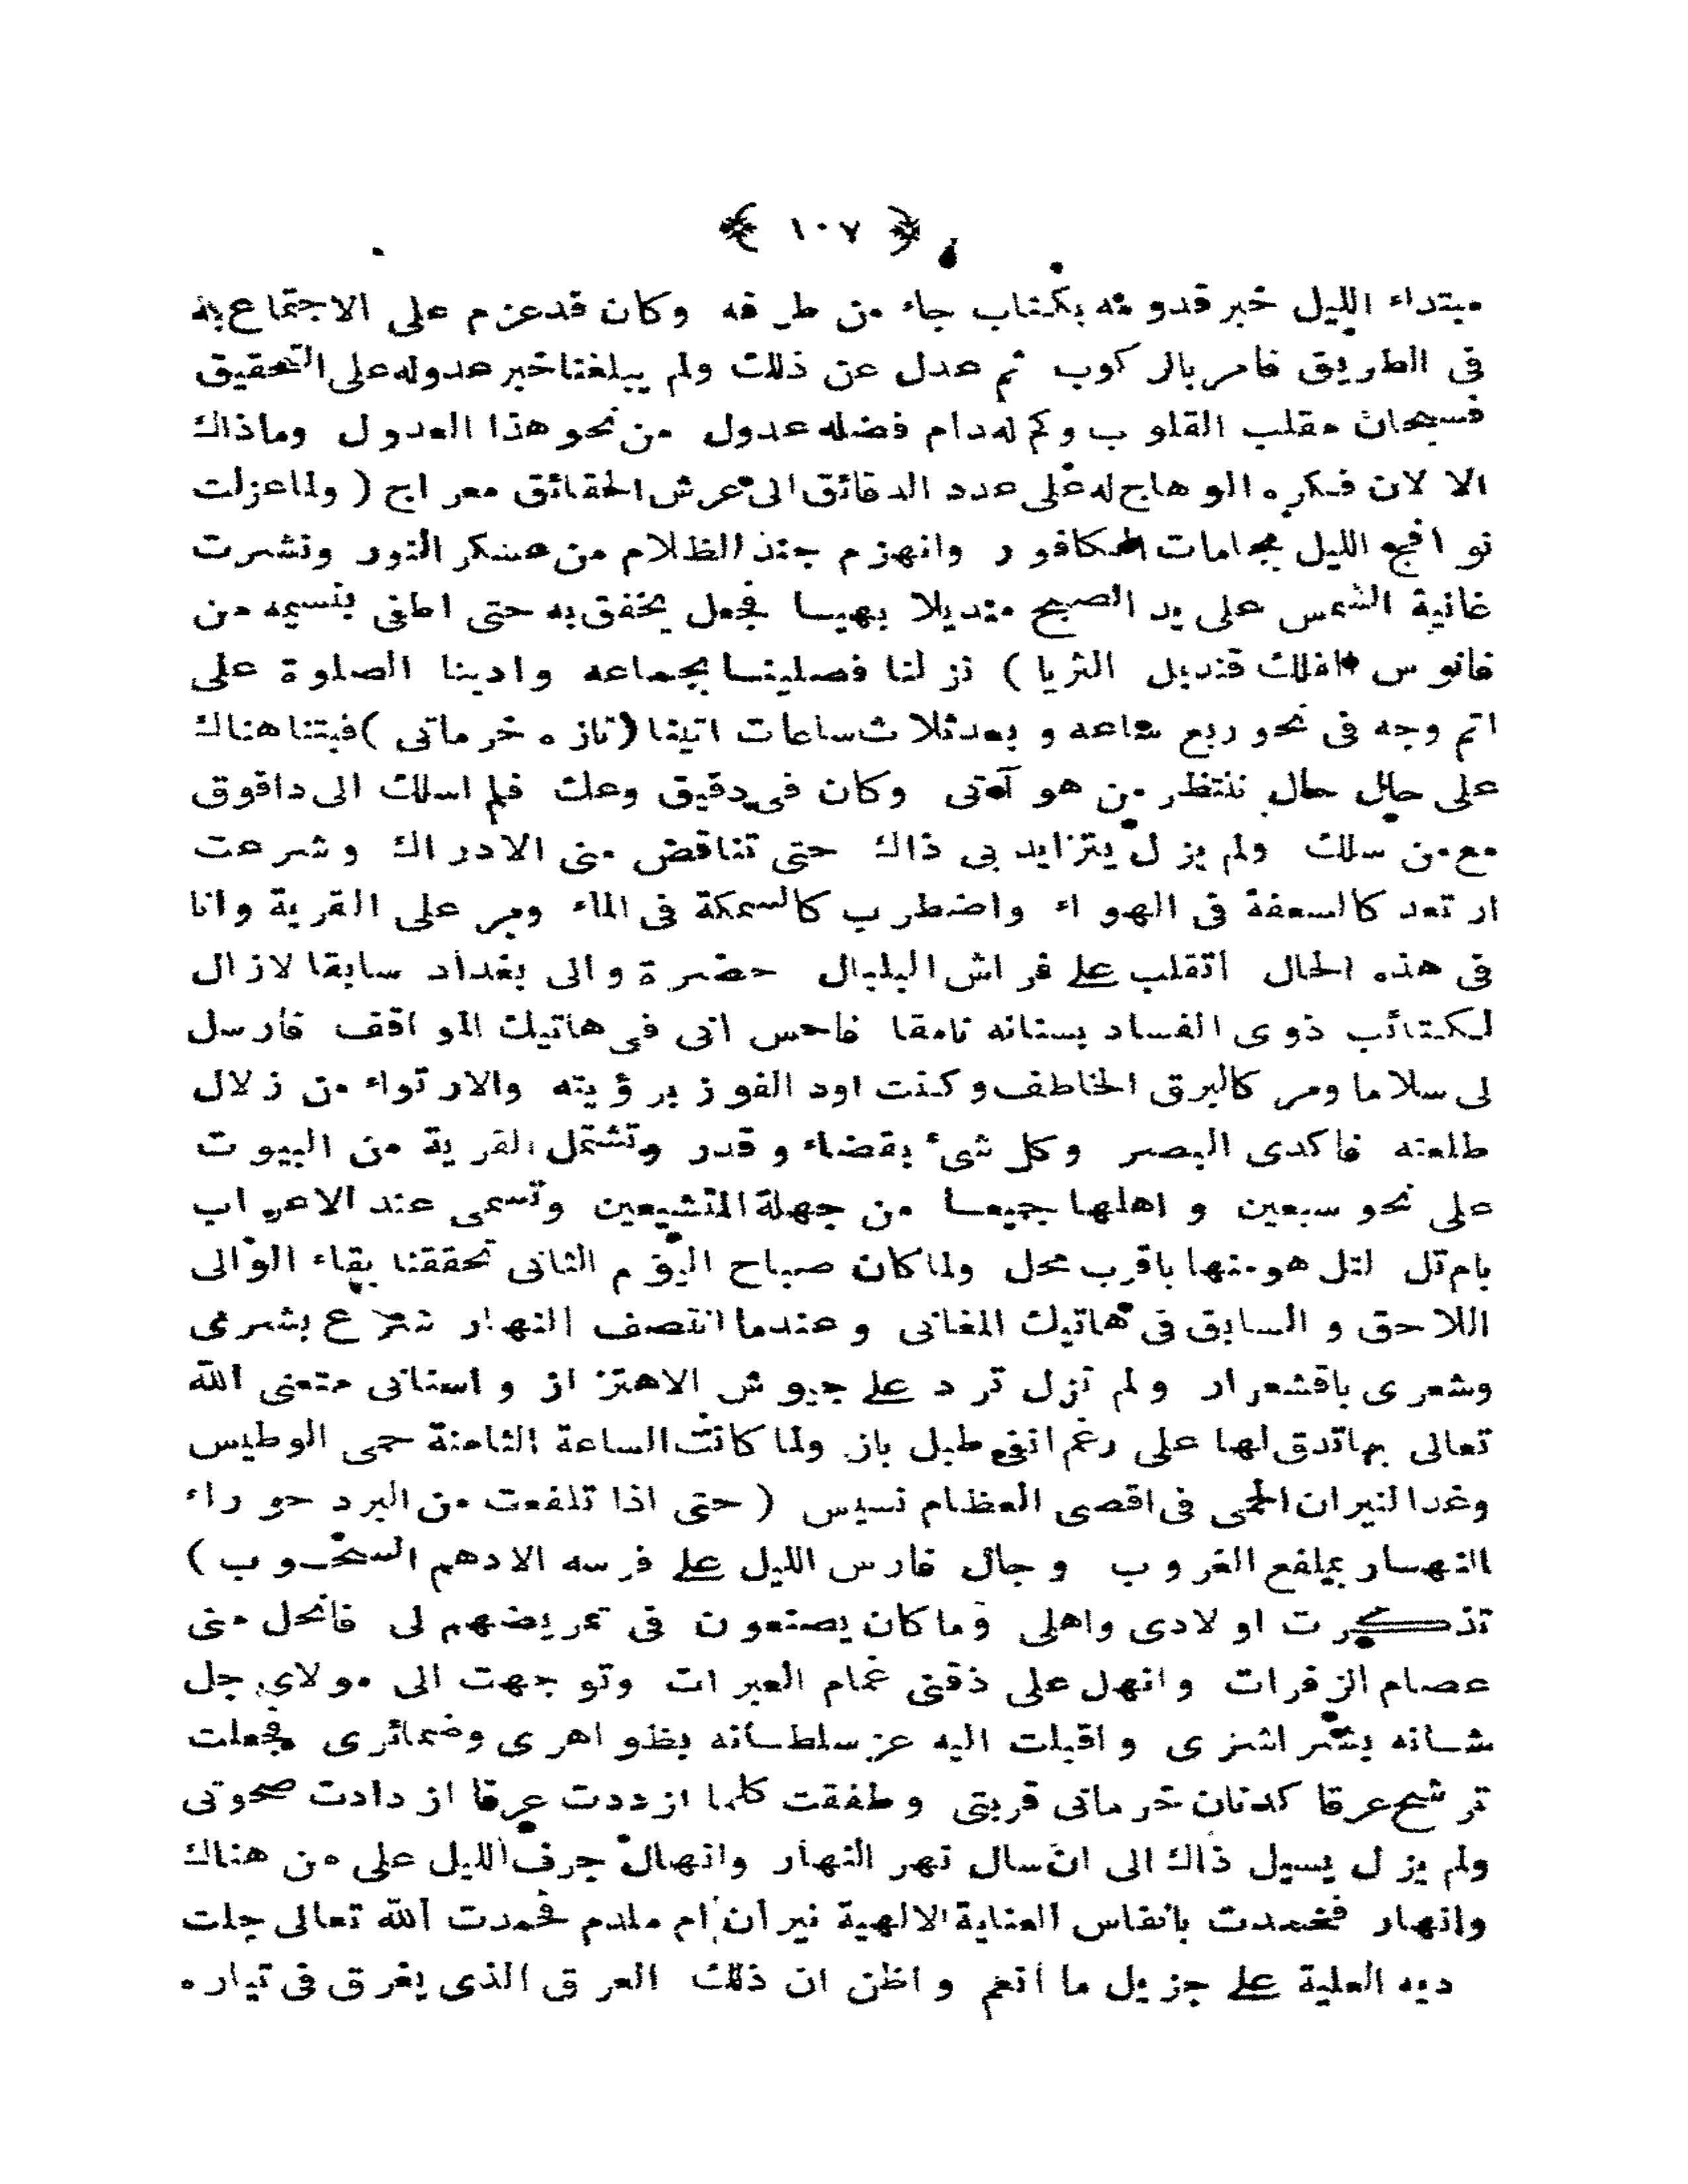 ﴿ ١٠٧ ﴾
مبتداء الليل خبر قدومه بكتاب جاء من طرفه وكان قد عزم على الاجتماع به
فى الطريق فامر بالركوب ثم عدل عن ذلك ولم يبلغنا خبر عدوله على التحقيق
فسبحان مقلب القلوب وكم له دام فضله عدول من نحو هذا العدول وماذاك
الا لان فكره الوهاج له على عدد الدقائق الى عرش الحقائق معراج ( ولما عزلت
نوافج الليل بجامات الكافور وانهزم جند الظلام من عسكر النور ونشرت
غانية الشمس على يد الصبح منديلا بهيا فجعل يخفق به حتى اطفى بنسيمه من
فانوس الفلك قنديل الثريا ) نزلنا فصلينا بجماعه وادينا الصلوة على
اتم وجه فى نحو ربع ساعه وبعد ثلاث ساعات اتينا ( تازه خرماتى ) فبتنا هناك
على حال حال ننتظر من هو آتى وكان فى دقيق وعك فلم اسلك الى داقوق
مع من سلك ولم يزل يتزايد بى ذاك حتى تناقض منى الادراك وشرعت
ارتعد كالسعفة فى الهواء واضطرب كالسمكة فى الماء ومر على القرية وانا
فى هذه الحال اتقلب على فراش البلبال حضرة والى بغداد سابقا لازال
لكتائب ذوى الفساد بسنانه نامقا فاحس انى فى هاتيك المواقف فارسل
لى سلاما ومر كالبرق الخاطف وكنت اود الفوز برؤيته والارتواء من زلال
طلعته فاكدى البصر وكل شئ بقضاء وقدر وتشتمل القرية من البيوت
على نحو سبعين واهلها جميعا من جهلة المتشيعين وتسمى عند الاعراب
بام تل لتل هو منها باقرب محل ولما كان صباح اليوم الثانى تحققنا بقاء الوالى
اللاحق والسابق فى هاتيك المغانى وعندما انتصف النهار شرع بشرى
وشعرى باقشعرار ولم تزل ترد على جيوش الاهتزاز واسنانى متعنى الله
تعالى بها تدق لها على رغم انفى طبل باز ولما كانت الساعة الثامنة حمى الوطيس
وغدا لنيران الحمى فى اقصى العظام نسيس ( حتى اذا تلفعت من البرد حوراء
النهار بملفع الغروب وجال فارس الليل على فرسه الادهم السحوب )
تذكرت اولادى واهلى وما كان يصنعون فى تمريضهم لى فانحل منى
عصام الزفرات وانهل على ذقنى غمام العبرات وتوجهت الى مولاى جل
شانه بشراشرى واقبلت اليه عز سلطانه بظواهرى وضمائرى فجعلت
ترشح عرقا كدنان خرماتى قربتى وطفقت كلما ازددت عرقا ازدادت صحوتى
ولم يزل يسيل ذاك الى ان سال نهر النهار وانهال جرف الليل على من هناك
وانهار فخمدت بانفاس العناية الالهية نيران ام ملدم فحمدت الله تعالى جلت
ديه العلية على جزيل ما انعم واظن ان ذلك العرق الذى يغرق فى تياره